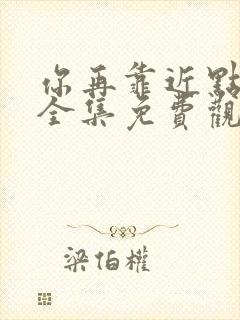 你再靠近點
全集免費觀
梁伯權